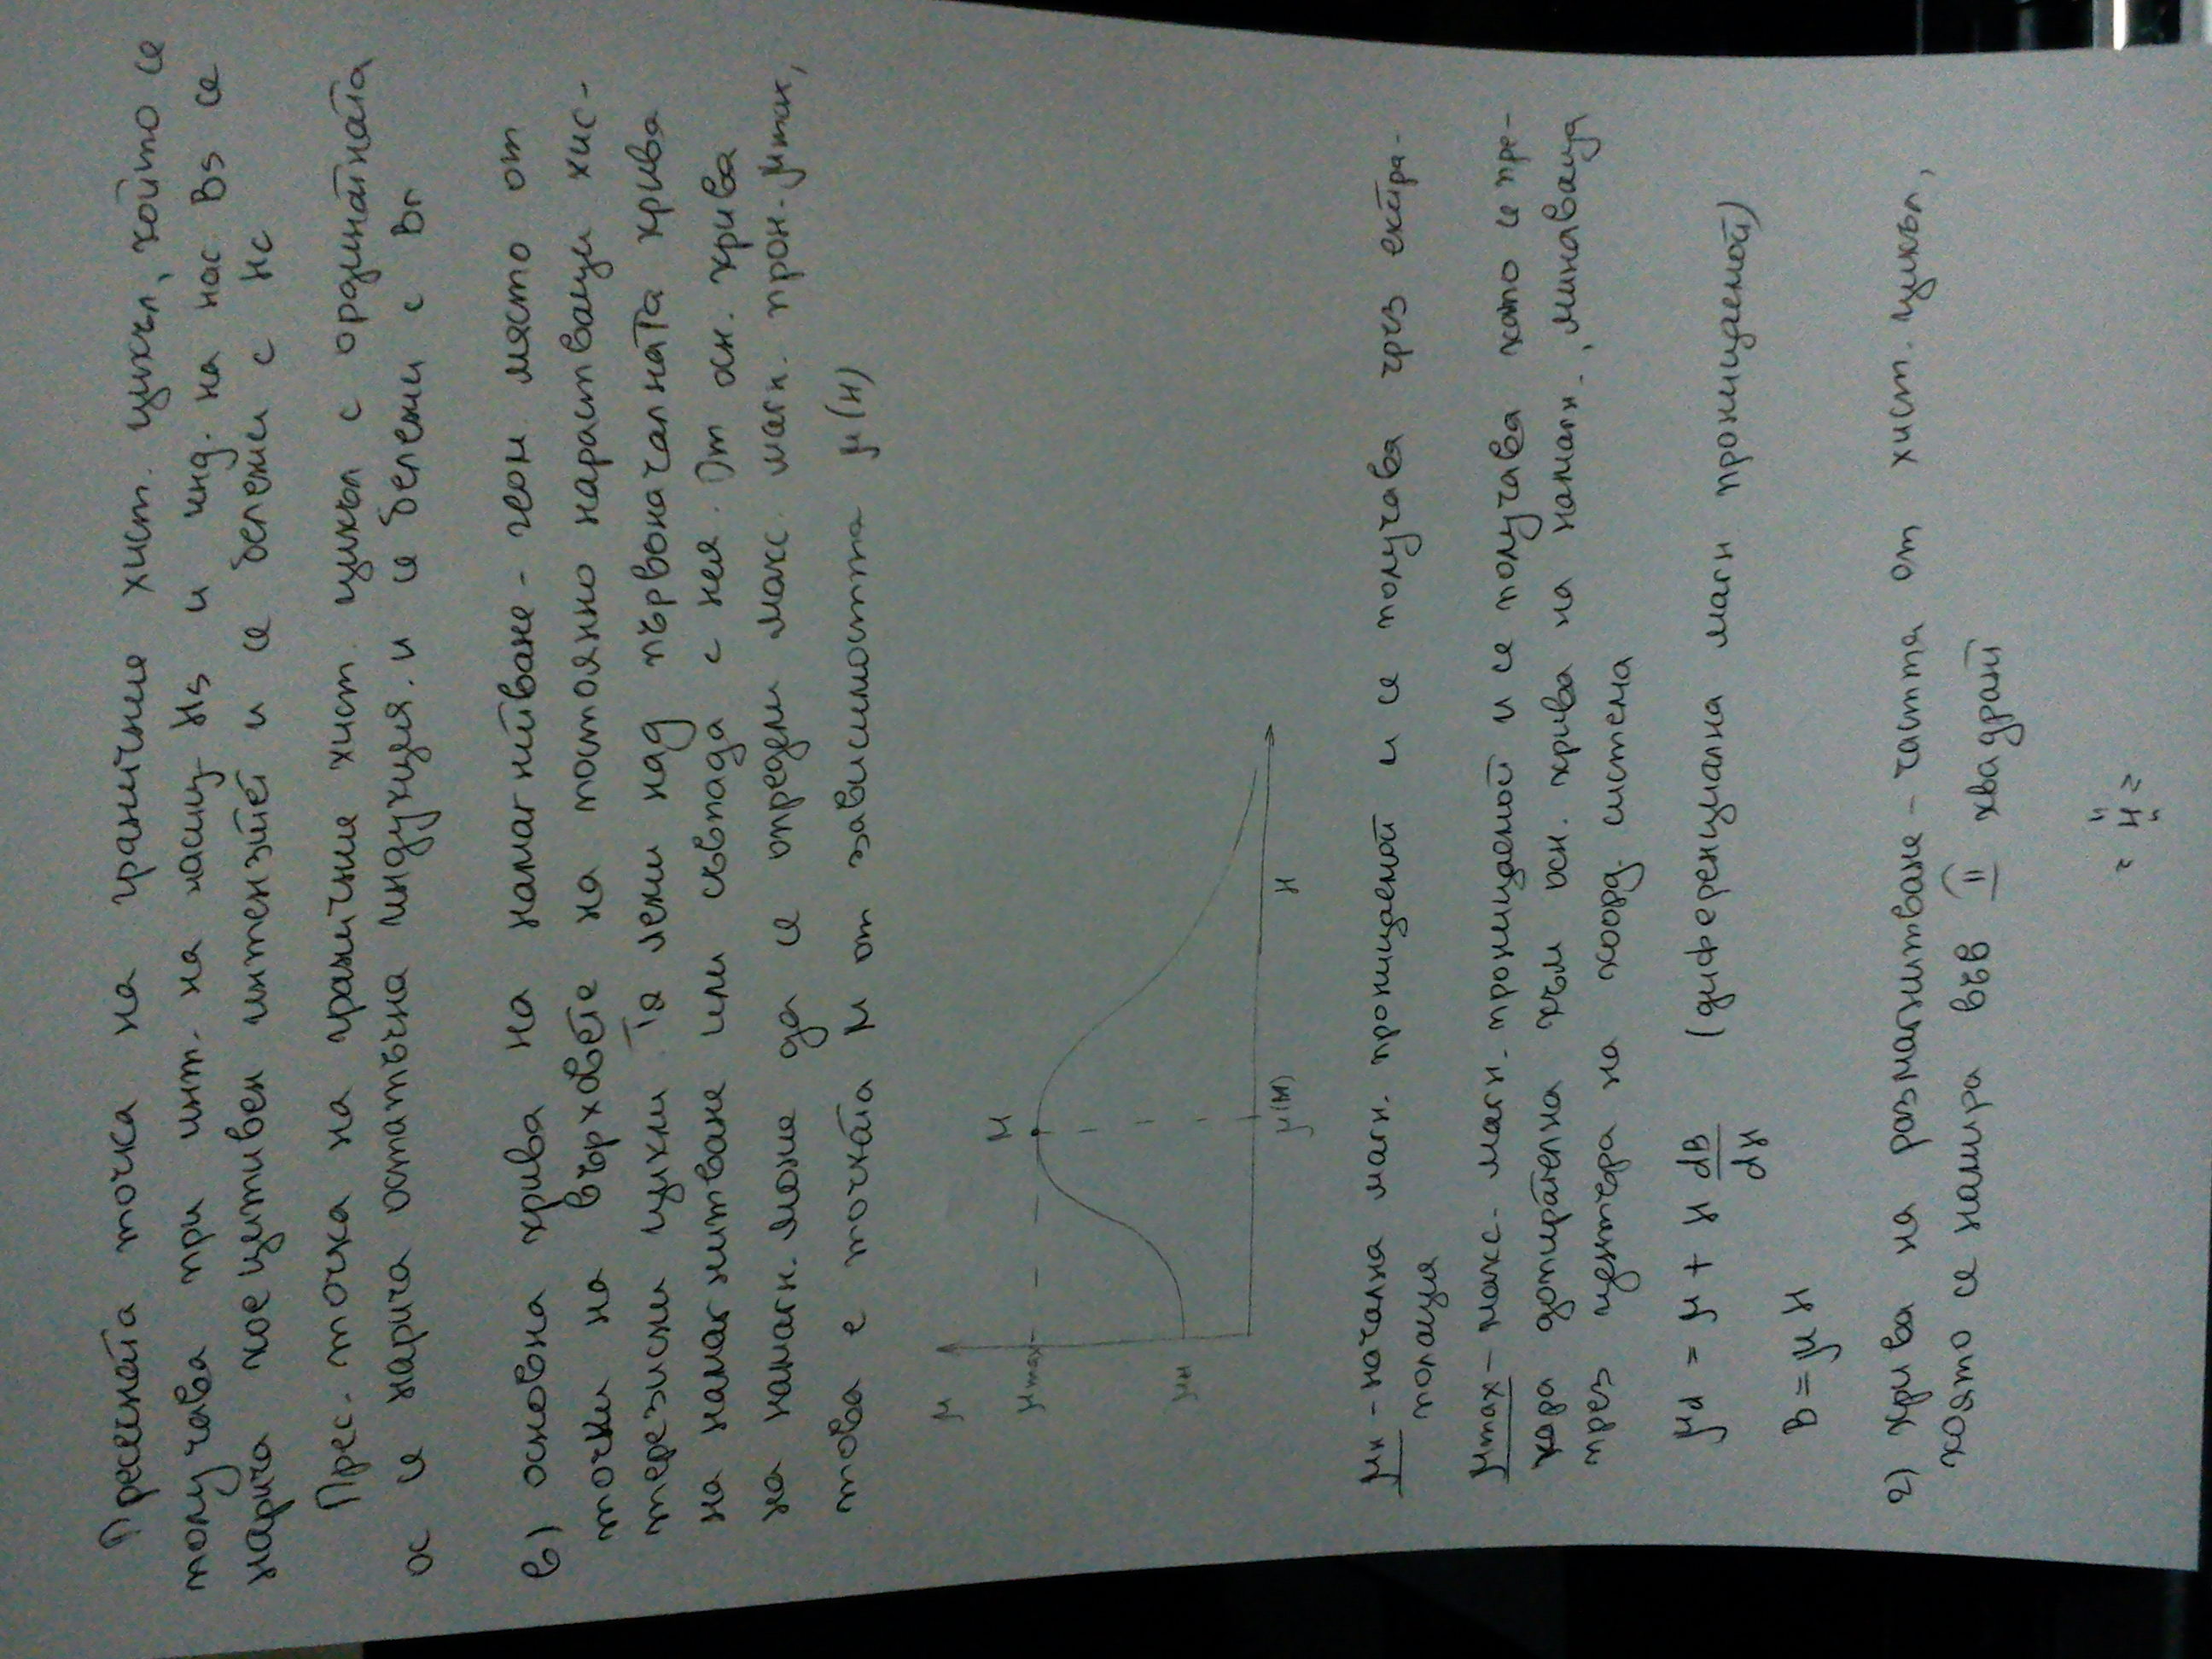 Пресечната точка на граничния хист. цикъл, който се
получава при инт. на насищ. Hs и инд. на нас Bs се
нарича коецитивен интензитет и се бележи с Hc
Прес. точка на граничние хист. цикъл с ординатната
ос се нарича остатъчна индукция. и се бележи с Br
в) основна крива на намагнитване - геом място от
точки на върховете на постоянно нарастващи хис-
терезисни цикли. Тя лежи над първоначалната крива
на намагнитване или съвпада с нея. От осн. крива
на намагн. може да се определи макс. магн. прон. μmax,
това е точката M от зависимостта μ(H)
μ
μmax
μн
M
μ(M)
H
μн - начална магн. проницаемост и се получава чрез екстра-
полация
μmax - макс. магн. проницаемост и се получава като се пре-
кара допирателна към осн. крива на намагн., минаваща
през центъра на коорд. система
μd = μ + H dB/dH (диференциална магн проницаемост)
B = μH
г) крива на размагнитване - частта от хист. цикъл,
която се намира във II квадрант